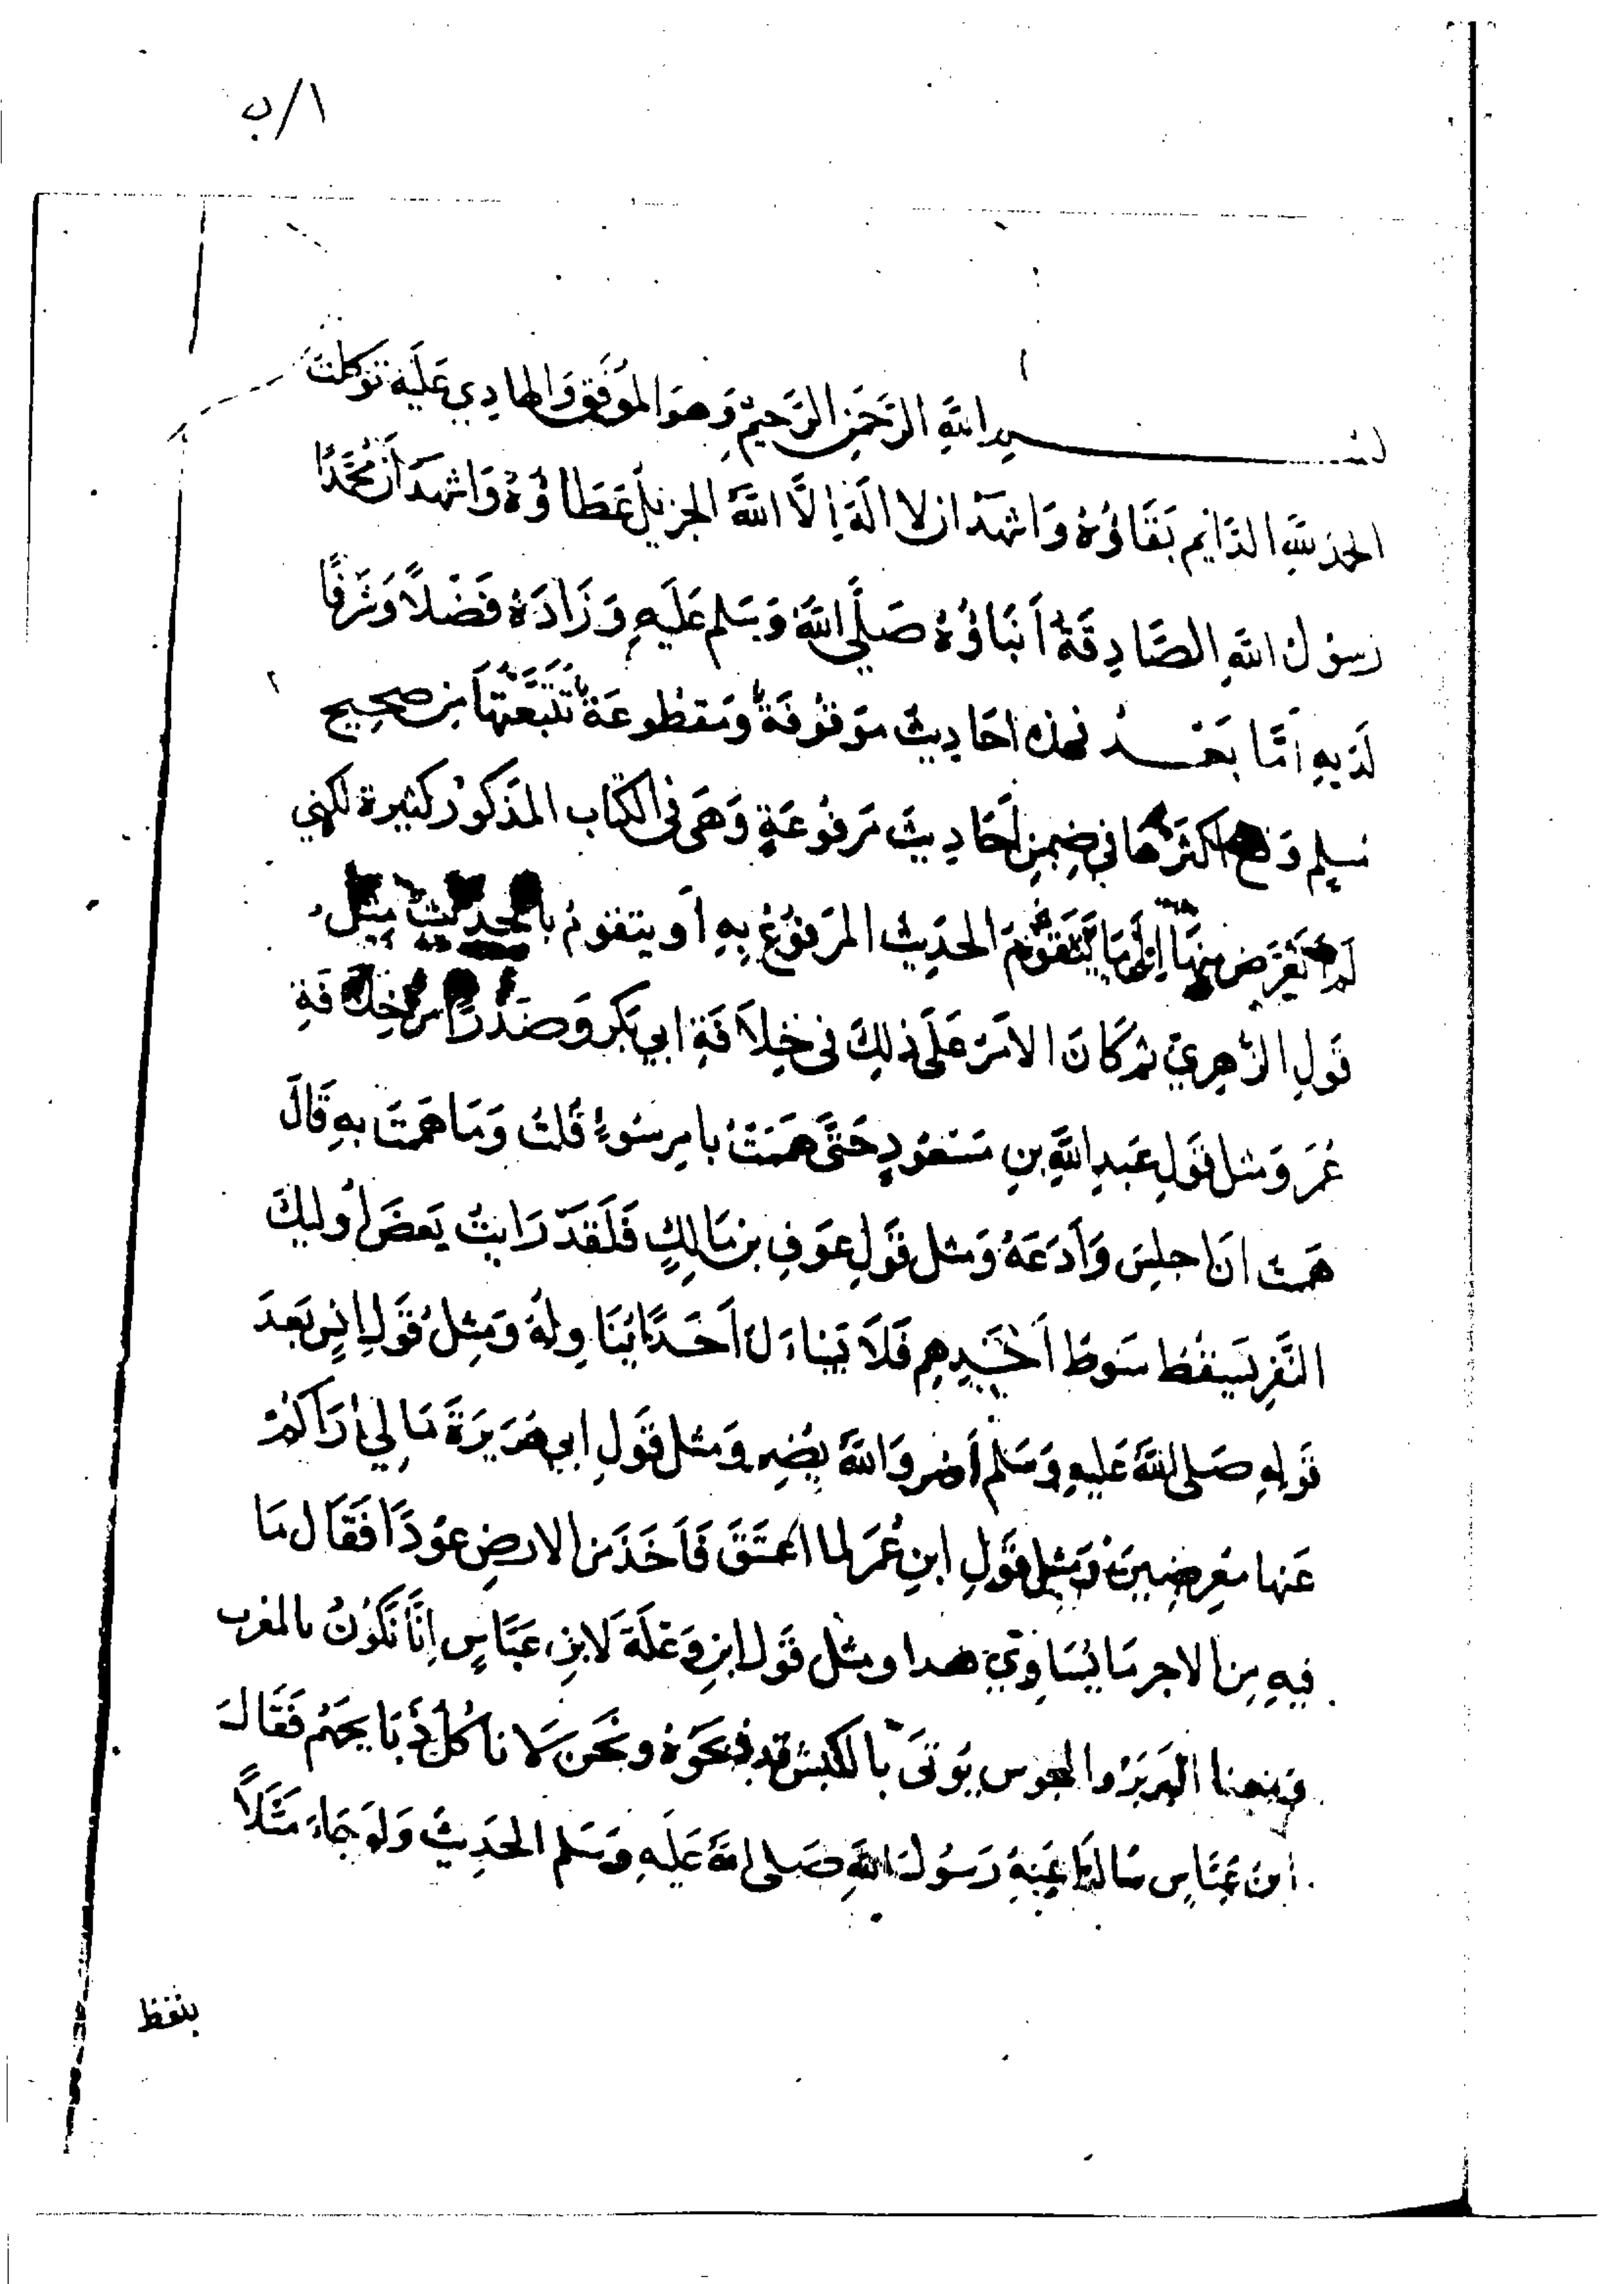 ١/ب
بسم الله الرَّحمَنِ الرَّحيمِ وَهوَ المُوَفِّق وَالهادِي عَلَيه تَوَكلتُ
الحمد لله الدَّايم بَقَاؤُهُ وَاشهَدُ ان لا اله اِلَّا اللهُ الجزيل عَطَاؤُهُ وَاشهَد اَن محَمَّدًا
رَسوُل اللهِ الصَّادِقَةُ اَنبَاؤُهُ صَلَّي اللهُ وَسَلم عَلَيهِ وَزَادَهُ فَضْلاً وَشَرَفًا
لَدَيهِ اَمَّا بَعْدُ فهذه احَادِيثُ مَوقُوفَةٌ وَمَقطُوعَةٌ تَتَبَّعتُهَا مِن صحيح
مُسلِم وَقع اكثَرُهَا في ضِمنِ اَحَادِيثَ مَرفُوعَةٍ وَهَى في الكتاب المَذكُور كثيرة لكني
لَم اَتَعَرَّض مِنهَا اِلى مَا يَتَقَوَّمُ الحَدِيث المَرفوُعُ بِهِ اَو يتقومُ بالحديث مِثلُ
قَولِ الزُّهرِيّ ثم كَانَ الاَمرُ عَلَى ذلِكَ فى خِلاَفَةِ ابي بَكرٍ وَصَدْرًا من خِلاَفَةِ
عُمَرَ وَمثل قَولِ عَبدِ اللهِ بنِ مَسْعُودٍ حَتَّى هَمَمْتُ بامرِ سُوءٍ قُلتُ وَمَا هَمَمتَ بهِ قَالَ
هَممت اَن اَجلِسَ وَاَدَعَهُ وَمثل قَولِ عَوفِ بن مَالِكٍ فَلَقَد رَايتُ بَعضَ اُوليِكَ
النَّفَرِ يَسقُط سَوطُ اَحَدِهِم فَلاَ يَسال اَحَدًا يُنَاوِلهُ وَمِثلُ قَولِ اَنسٍ بَعدَ
قَولِهِ صَلى اللهُ عَليهِ وَسَلم وَمثل قَولِ ابي هُرَيرَةَ مَا لِي اَرَاكُمْ
عَنها مُعرِضِينَ وَمِثلِ قَولِ ابنِ عُمَرَ لما اعتَقَ فَاَخَذَ مِنَ الارضِ عوُدًا فَقَال مَا
فِيهِ مِن الاجرِ مَا يُسَاوِي هَذا ومثل قَول ابنِ وَعْلَةَ لابنِ عبَّاسٍ اِنَّا نَكُونُ بالمغرب
وَمعنا البَربَرُ والمجوس يُوتَى بالكبش قد ذَبحَوُهُ ونَحَن لا نَاكُلُ ذَبَايحَهُم فَقَالَ
ابنُ عَبَّاسٍ سَالنَا عَنهُ رَسُولَ اللهِ صَلى اللهُ عَلَيهِ وَسَلم الحَدِيثَ وَلَو جَاءَ مَثَلاً
بلفظ